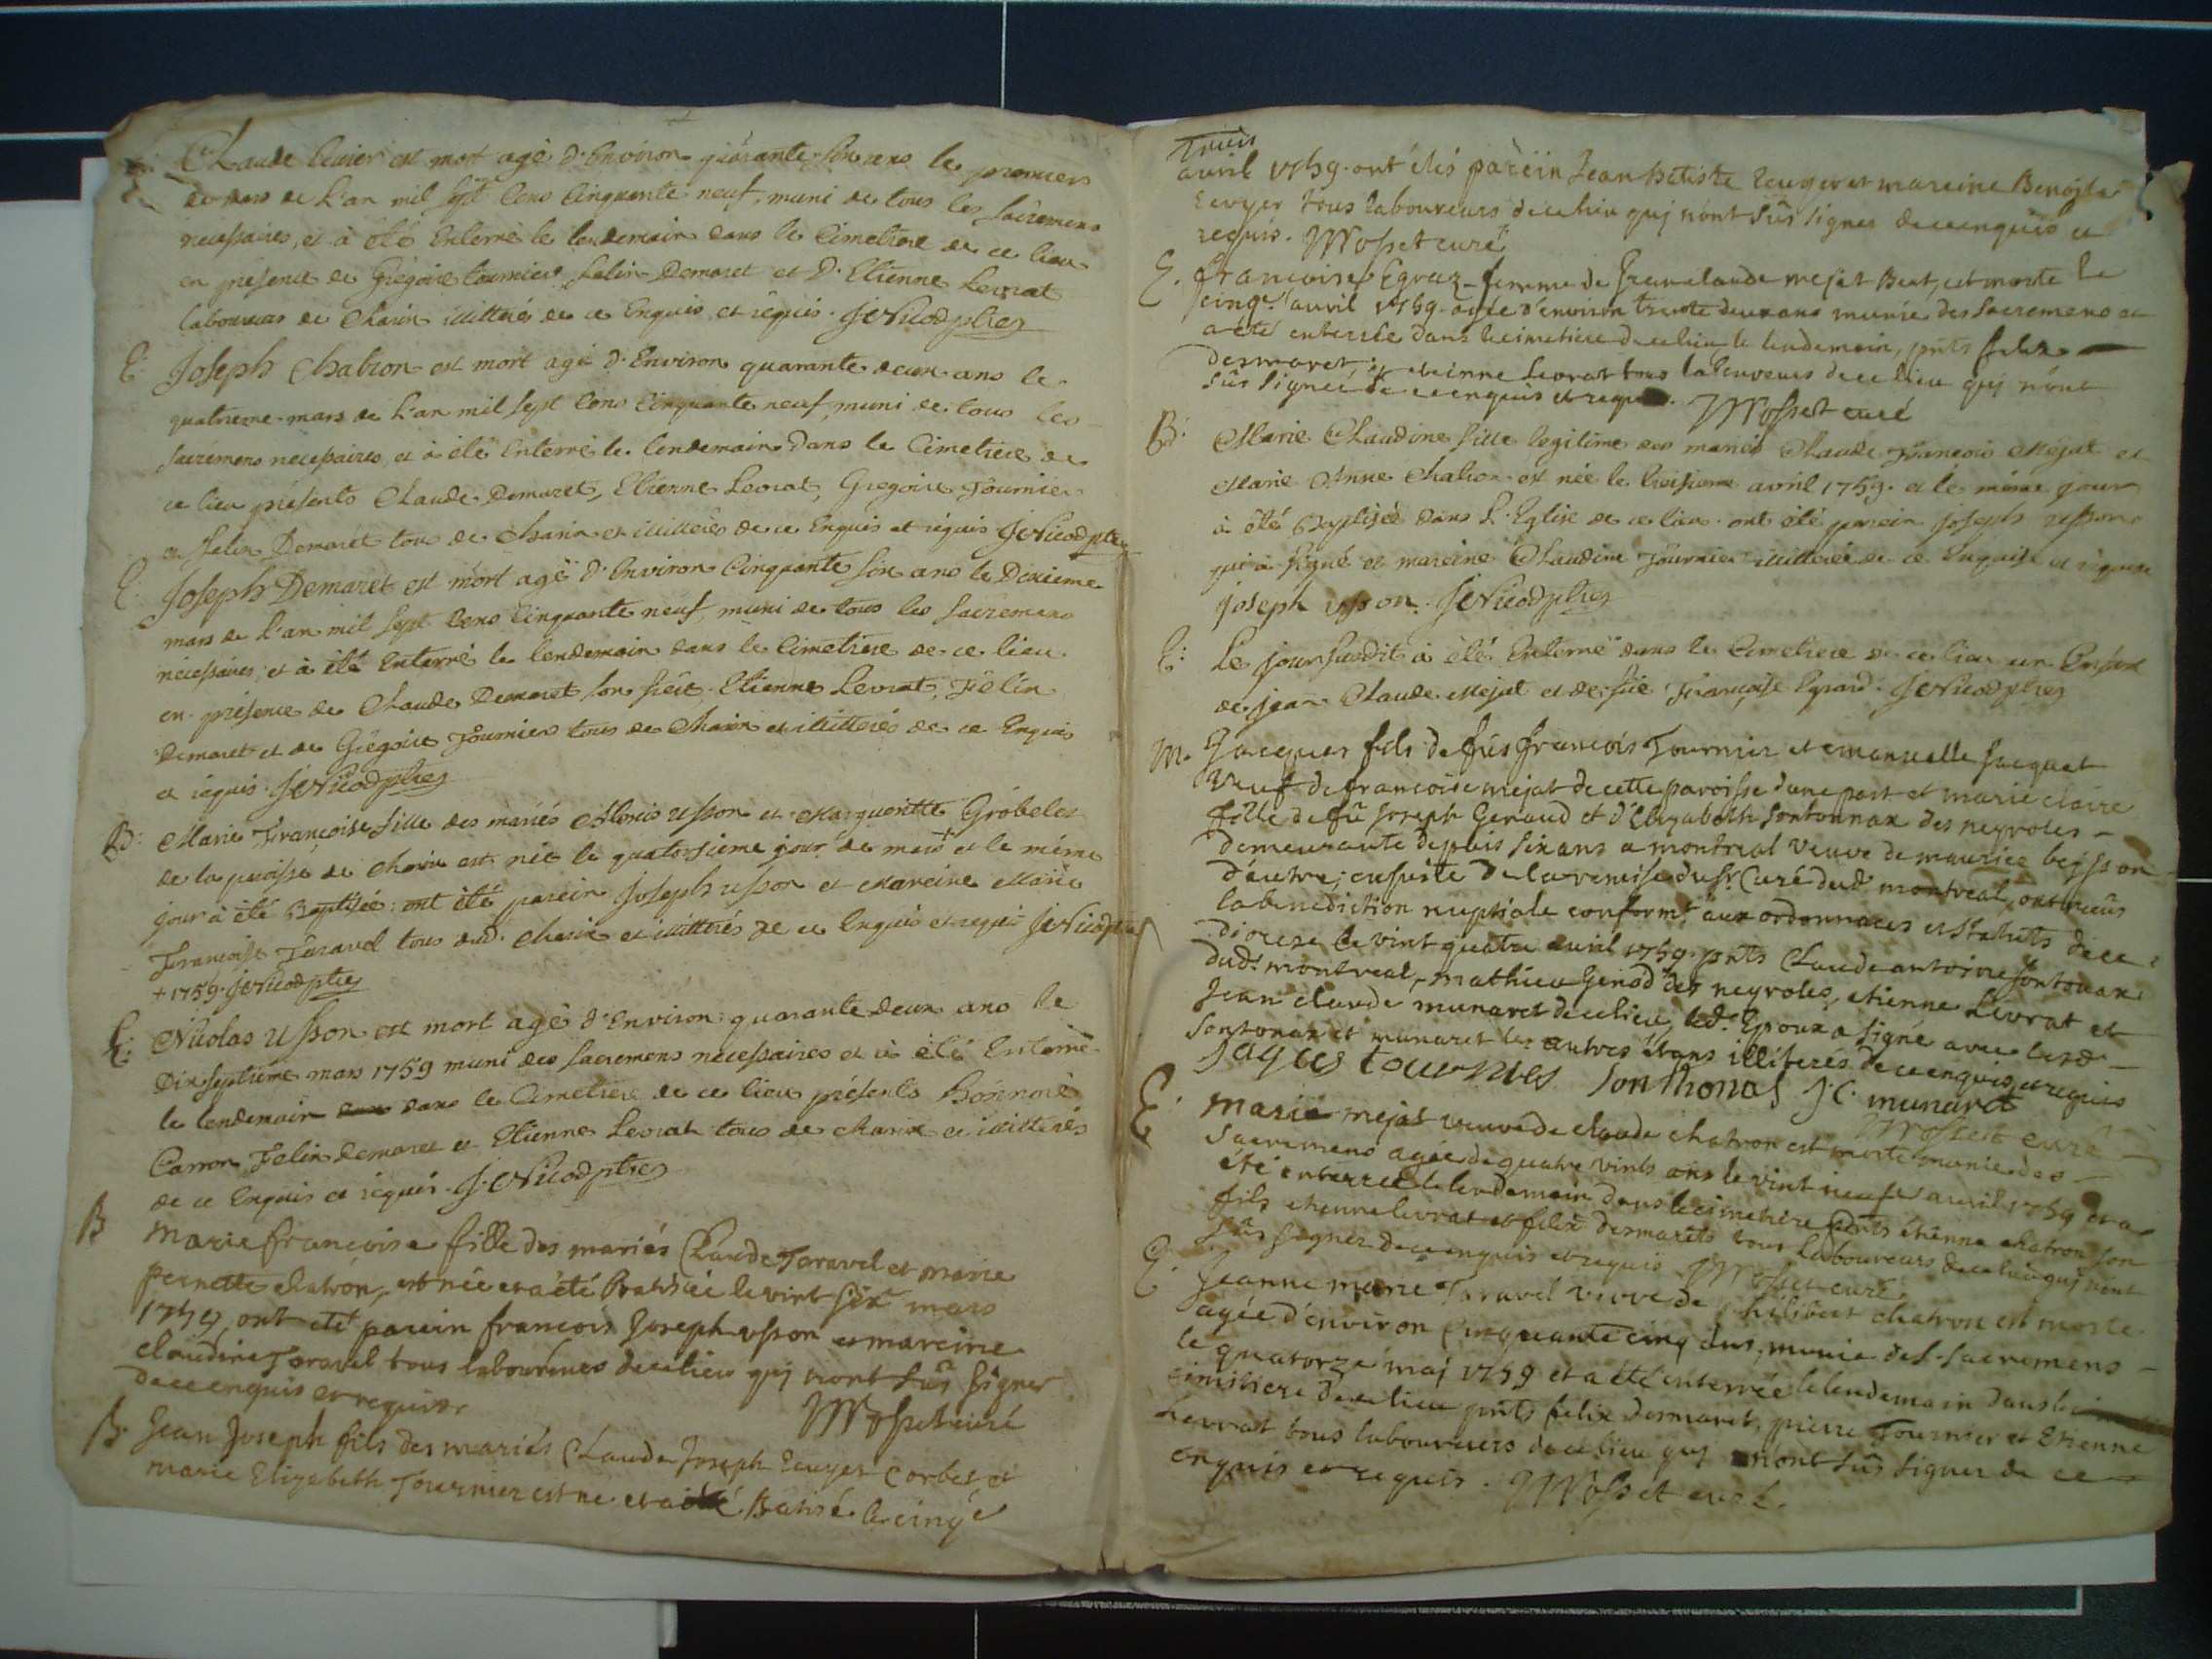 E. Claude est mort agé d'Environ quarante ans le premier
de mars de L'an mil sept Cens Cinquante neuf, muni de tous les Sacremens
necessaires, et à été Enterré le lendemain dans le Cimetiere de ce lieu
en présence de Grégoire tournier Felin Demaret et d'Etienne Levrat
laboureurs de Charix illitterés de ce Enquis et réquis. J Nicod ptre
E: Joseph Chatron est mort agé d'Environ quarante deux ans le
quatrieme mars de L'an mil sept Cens Cinquante neuf, muni de tous les
sacrémens necessaires, et à été Enterré le lendemain dans le Cimetiere de
ce lieu présents Claude Demaret, Etienne Levrat, Gregoire Tournier
et Felin Demaret tous de Charix et illitterés de ce Enquis et réquis J Nicod ptre
E. Joseph Demaret est mort agé d'Environ Cinquante six ans le Dixieme
mars de L'an mil sept Cens Cinquante neuf, muni de tous les Sacremens
nécessaires, et à été Enterré le lendemain dans le Cimetiere de ce lieu
en présence de Claude Demaret son Etienne Levrat, Felin
Demaret et de Grégoire Tournier tous de Charix et illitterés de ce Enquis
et réquis J Nicod ptre
B: Marie Françoise fille des mariés usson et Marguerite Gröbelet
de la paroisse de Charix est née le quatorsieme jour de mars + et le même
jour à été Baptisée: ont été parein Joseph usson et Mareine Marie
Françoise Taravel tous dud. Charix et illitterés de ce Enquis et réquis J Nicod ptre
+ 1759. J Nicod ptre
E: Nicolas Usson est mort agé d'Environ quarante deux ans le
Dix septieme mars 1759 muni des sacremens necessaires et à été Enterré
le lendemain dans le Cimetiere de ce lieu présents
Carron Felin Demaret et Etienne Levrat tous de charix et illitterés
de ce Enquis et réquis. J. Nicod ptre
B Marie françoise fille des mariés Claude Taravel et marie
pernette chatron, est née et a été Batisée le vint six mars
1759, ont eté parein francois Joseph usson et mareine
claudine Taravel tous laboureurs de ce lieu qui n'ont sûs signer
de ce enquis et requis. Mosset curé
B. Jean Joseph fils des mariés Claude Joseph Ecuyer Corbet, et
marie Elizabeth Tournier est ne et a été Batisé le cinq
avril 1759. ont étés parein Jean Batiste Ecuyer et mareine
Ecuyer tous laboureurs de ce lieu qui n'ont sûs signer de ce enquis et
requis. Mosset curé
E. francoise Egraz femme de Jean claude mejat Beat, est morte le
cinq avril 1759 agée d'environ trente deux ans munie des sacremens et
a été enterrée dans le cimetiere de ce lieu le lendemain, pnts felix
desmaret, et etienne Levrat tous laboureurs de ce lieu qui n'ont
sûs signer de ce enquis et requis. Mosset curé
B: Marie Claudine fille legitime des mariés Claude François Mejat et
Marie Anne Chatron est née le troisieme avril 1759. et le même jour
à été Baptisée dans L'Eglise de ce lieu. ont été parein joseph usson
qui à signé et mareine Claudine Tournier illitterée de ce Enquise et réquise
joseph usson. J Nicod ptre
E: Le jour susdit à été Enterré dans le Cimetiere de ce lieu un Enfant
de jean Claude Mejat et de Françoise Egraz. J Nicod ptre
M. Jacques fils de fûs françois Tournier et emanuelle Jacquet
veuf de francoise mejat de cette paroisse d'une part et marie claire
fille de fû Joseph Genaud et d'Elizabeth Sontonnax des neyroles
demeurante depuis six ans a montreal veuve de maurice beysson
d'autre; ensuite de la remise du sr Curé dud. montreal, ont reçus
la benediction nuptiale conformt aux ordonnances et statuts de ce
diocese le vint quatre avril 1759. pnts Claude antoine Sontonax
dud. montreal, mathieu Genod des neyroles, etienne Levrat et
Jean claude munaret de ce lieu, led. Epoux a signé avec lesd.
Sontonax et munaret les autres étans illiterés de ce enquis et requis
jaques tournier Sonthonas J C. munaret
Mosset curé
E. Marie mejat veuve de claude chatron est morte munie des
sacremens agée de quatre vints ans le vint neuf avril 1759 et a
été enterrée le lendemain dans le cimetiere pnts etienne chatron son
fils etienne levrat et felix desmarets tous laboureurs de ce lieu qui n'ont
sûs signer de ce enquis et requis Mosset curé
E. Jeanne marie Taravel veuve de philibert chatron est morte
agée d'environ cinquante cinq ans, munie des sacremens
le quatorze maj 1759 et a été enterrée le lendemain dans le
cimetiere de ce lieu pnts felix desmaret, pierre Tournier et Etienne
Levrat tous laboureurs de ce lieu qui n'ont sûs signer de ce
enquis et requis. Mosset curé.